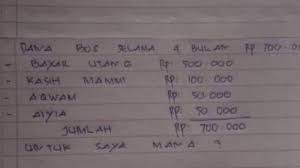 DANA BOS SELAMA 4 BULAN Rp 700.000
- BAYAR UTANG Rp. 500.000
- KASIH MAMMI Rp. 100.000
- AQWAM Rp. 50.000
- AIYIA Rp. 50.000
JUMLAH Rp. 700.000
UNTUK SAYA MANA ?